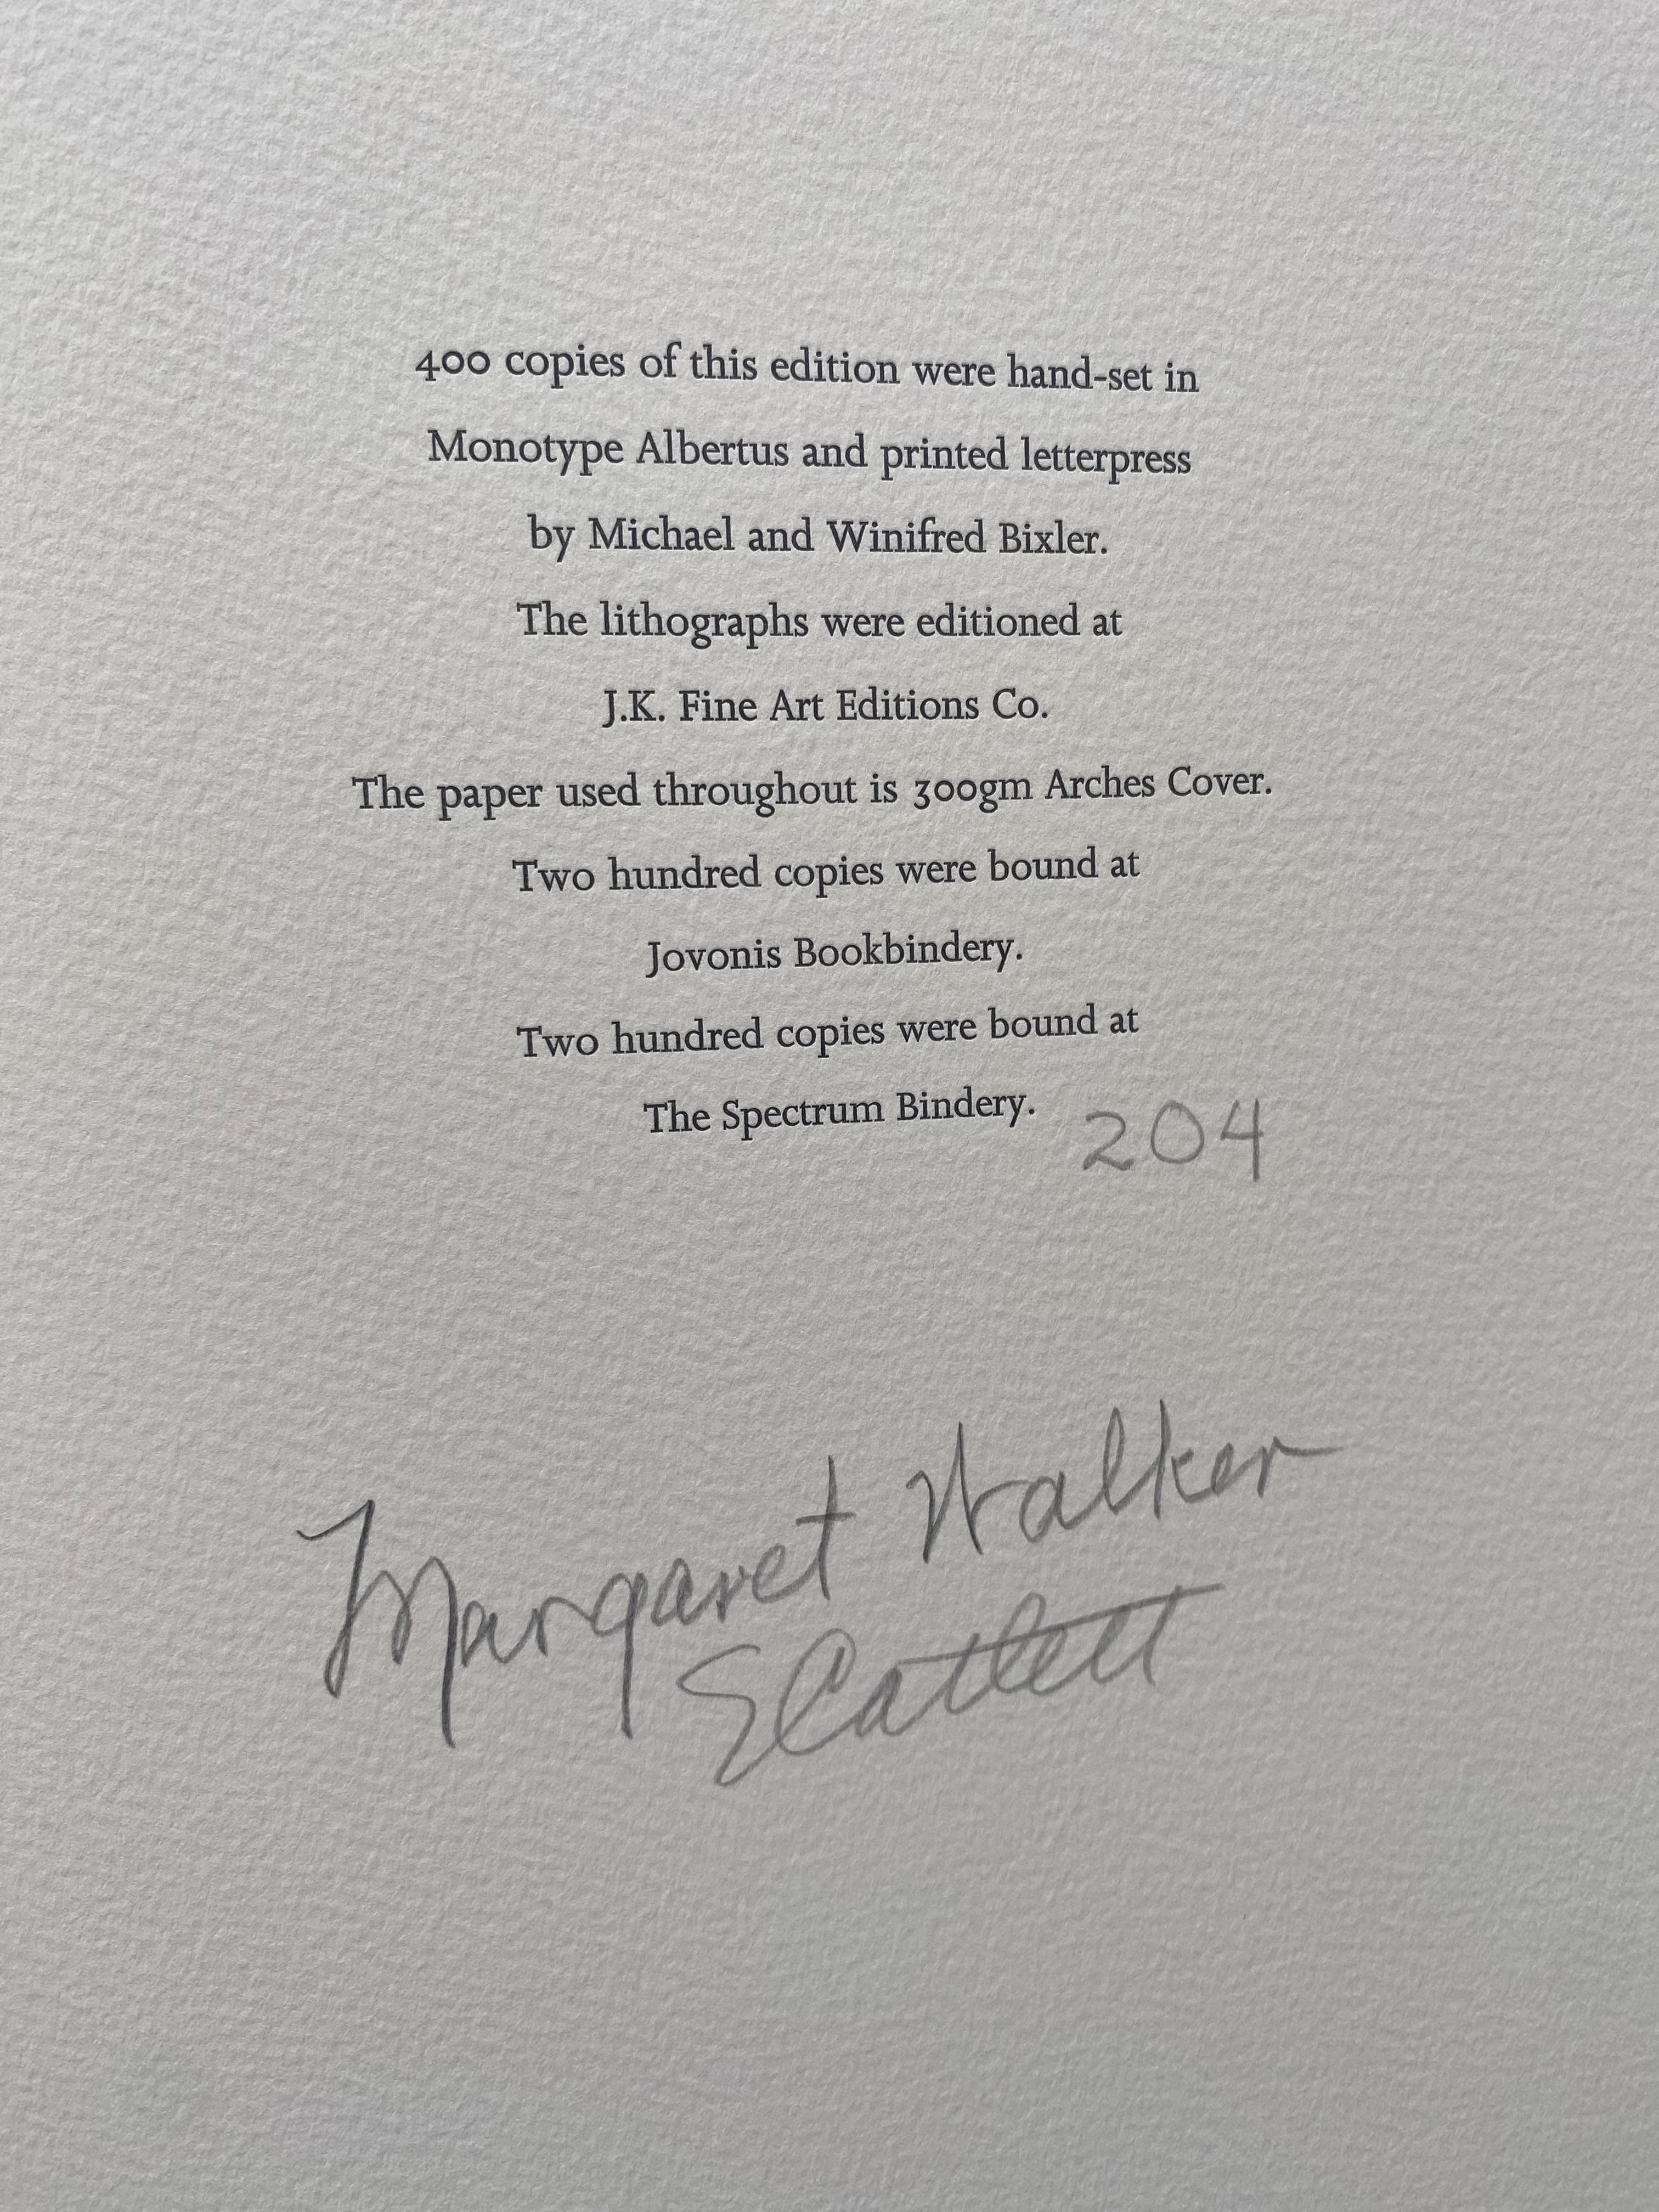 400 copies of this edition were hand-set in
Monotype Albertus and printed letterpress
by Michael and Winifred Bixler.
The lithographs were editioned at
J.K. Fine Art Editions Co.
The paper used throughout is 300gm Arches Cover.
Two hundred copies were bound at
Jovonis Bookbindery.
Two hundred copies were bound at
The Spectrum Bindery.
204
Margaret Walker
ECatlett